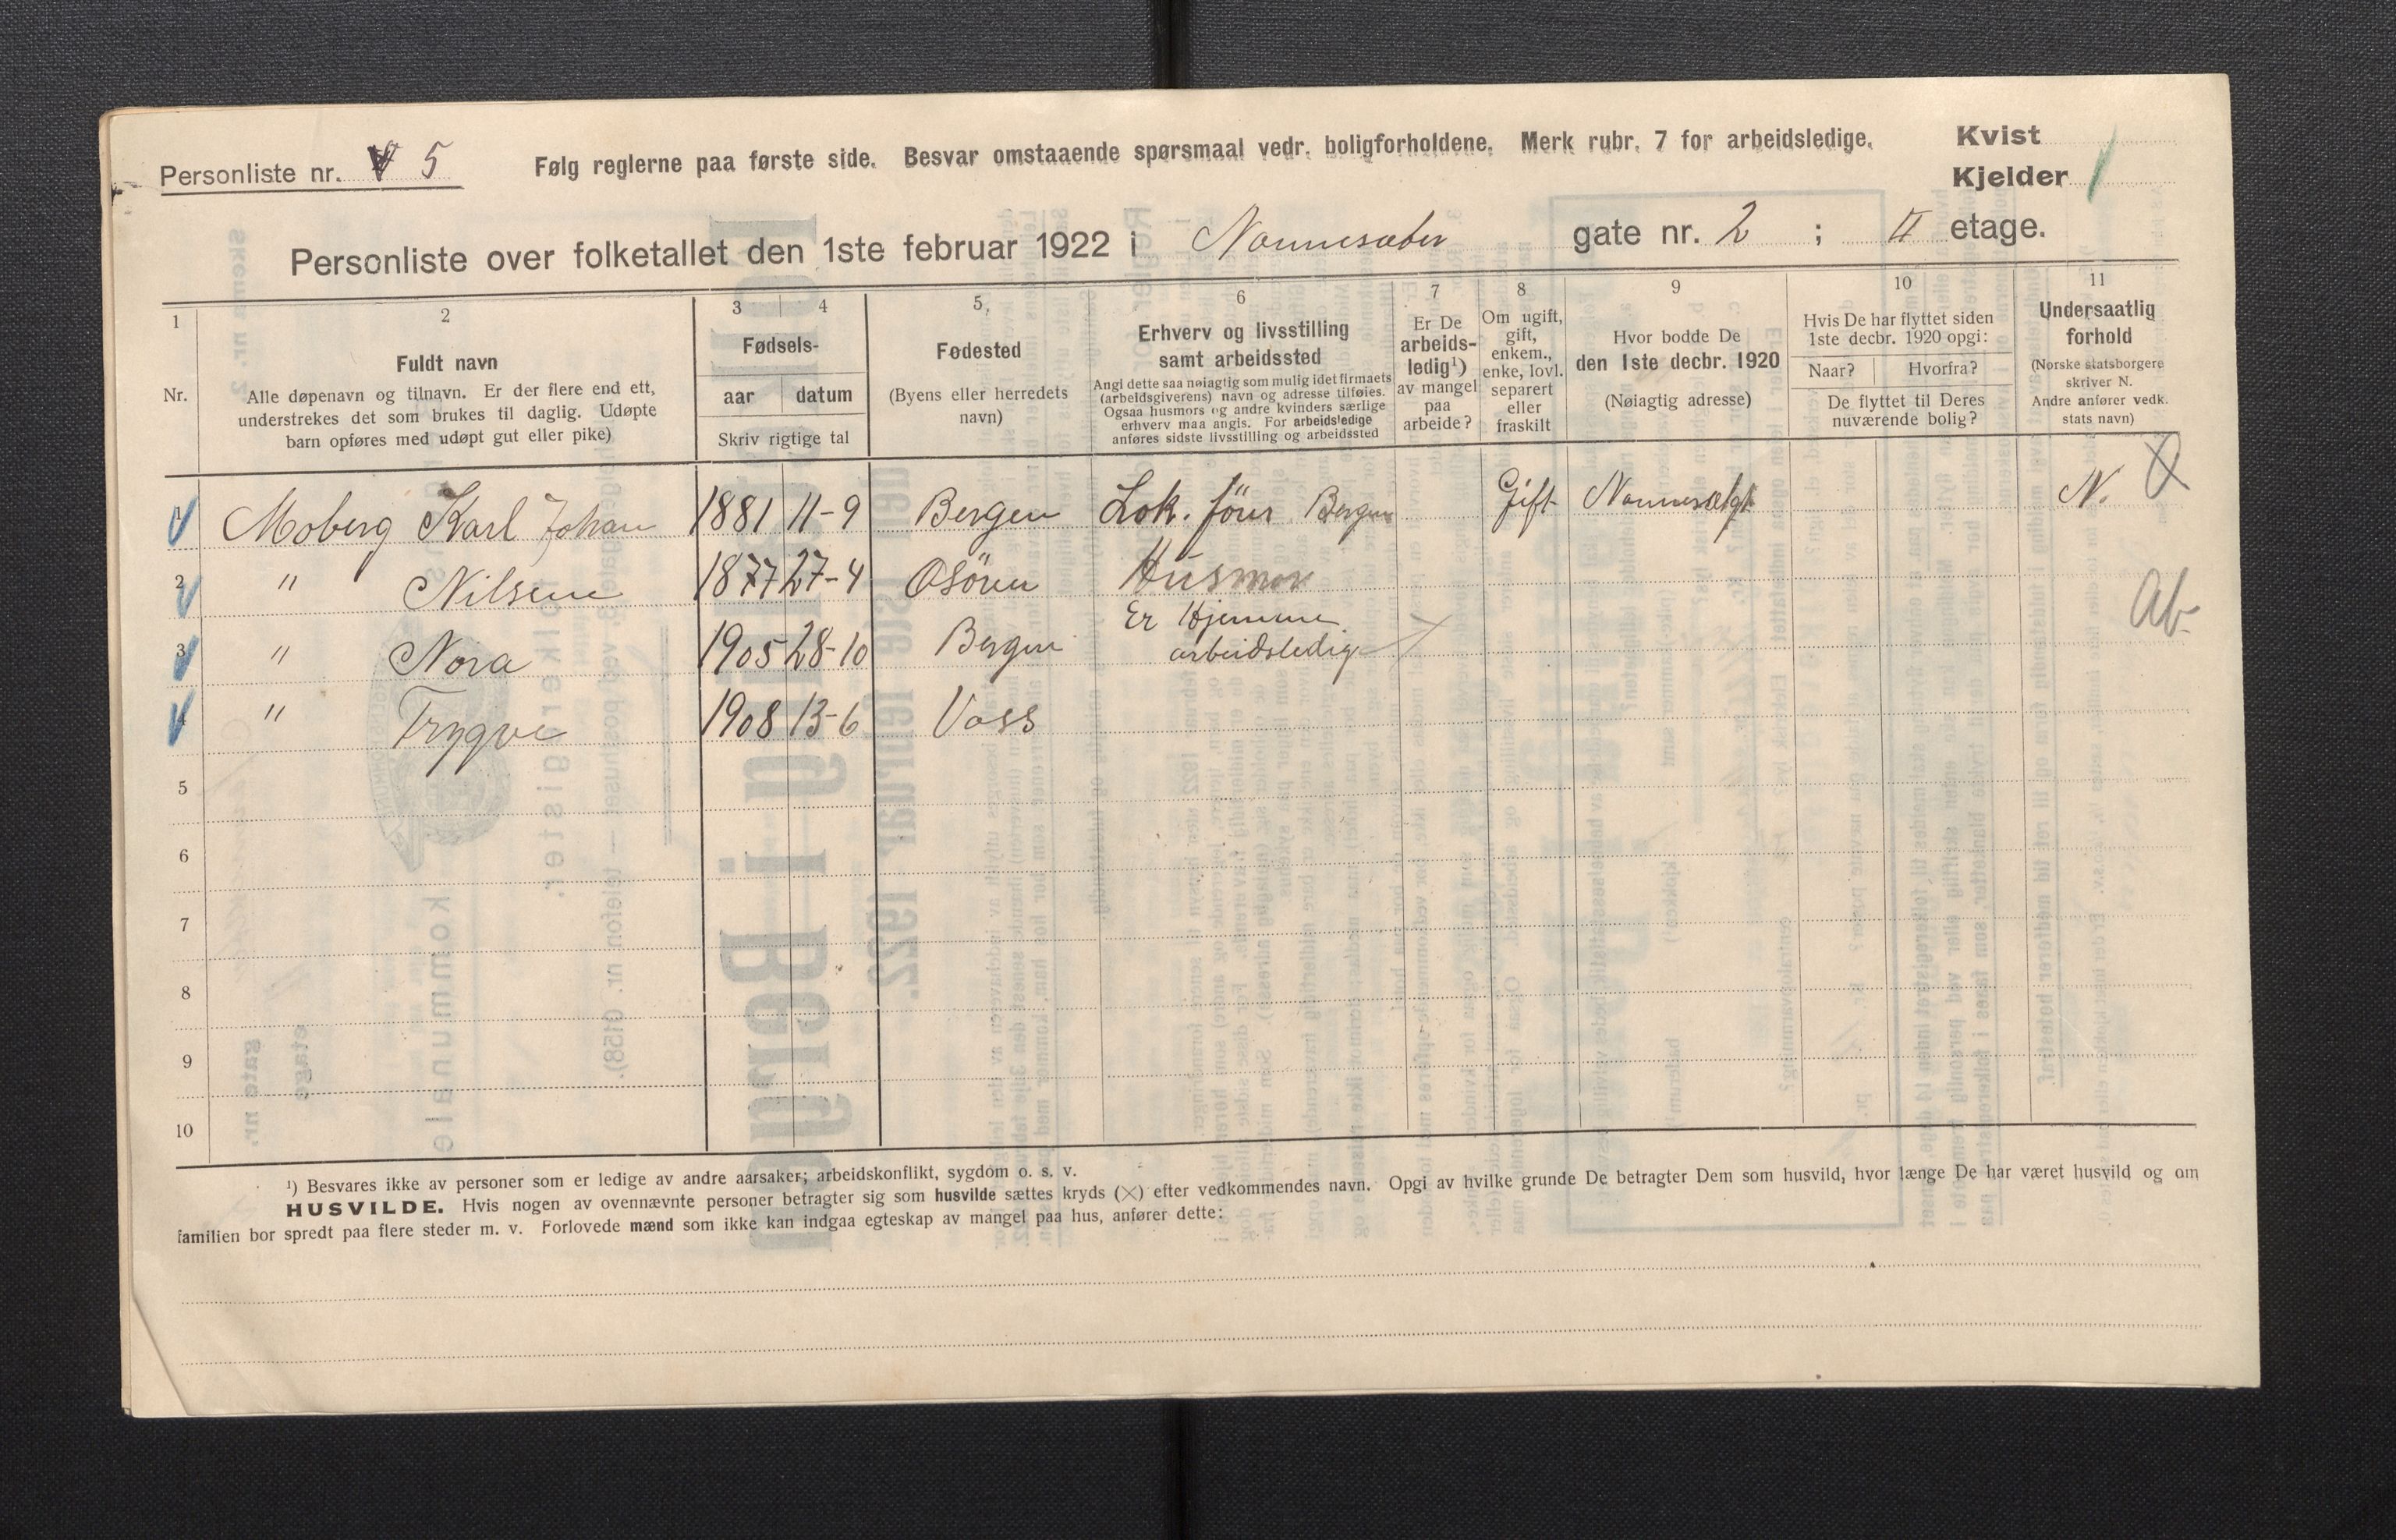 Personliste nr. 5
Følg reglerne paa første side. Besvar omstaaende spørsmaal vedr. boligforholdene. Merk rubr. 7 for arbeidsledige.
Kvist
Kjelder
Personliste over folketallet den 1ste februar 1922 i Nonnesæter gate nr. 2 ; II etage.
1
Nr.
2
Fuldt navn
Alle døpenavn og tilnavn. Er der flere end ett,
understrekes det som brukes til daglig. Udøpte
barn opføres med udøpt gut eller pike)
3 4
Fødsels-
aar datum
Skriv rigtige tal
5.
Fødested
(Byens eller herredets
navn)
6
Erhverv og livsstilling
samt arbeidssted
Angi dette saa nøiagtig som mulig idet firmaets
(arbeidsgiverens) navn og adresse tilføies.
Ogsaa husmors og andre kvinders særlige
erhverv maa angis. For arbeidsledige
anføres sidste livsstilling og arbeidssted
7
Er De
arbeids-
ledig¹)
av mangel
paa
arbeide?
8
Om ugift,
gift,
enkem.,
enke, lovl.
separert
eller
fraskilt
9
Hvor bodde De
den 1ste decbr. 1920
(Nøiagtig adresse)
10
Hvis De har flyttet siden
1ste decbr. 1920 opgi:
Naar? Hvorfra?
De flyttet til Deres
nuværende bolig?
11
Undersaatlig
forhold
(Norske statsborgere
skriver N.
Andre anfører vedk.
stats navn)
1 Moberg Karl Johan 1881 11-9 Bergen Lok. förer Bergen Gift Nonnesætgt N.
2 " Nilsine 1877 27-4 Osören Husmor
Ab
3 " Nora 1905 28-10 Bergen Er Hjemme
arbeidsledig
4 " Trygve 1908 13-6 Voss
5
6
7
8
9
10
¹) Besvares ikke av personer som er ledige av andre aarsaker; arbeidskonflikt, sygdom o. s. v.
HUSVILDE. Hvis nogen av ovennævnte personer betragter sig som husvilde sættes kryds (×) efter vedkommendes navn. Opgi av hvilke grunde De betragter Dem som husvild, hvor længe De har været husvild og om
familien bor spredt paa flere steder m. v. Forlovede mænd som ikke kan indgaa egteskap av mangel paa hus, anfører dette: